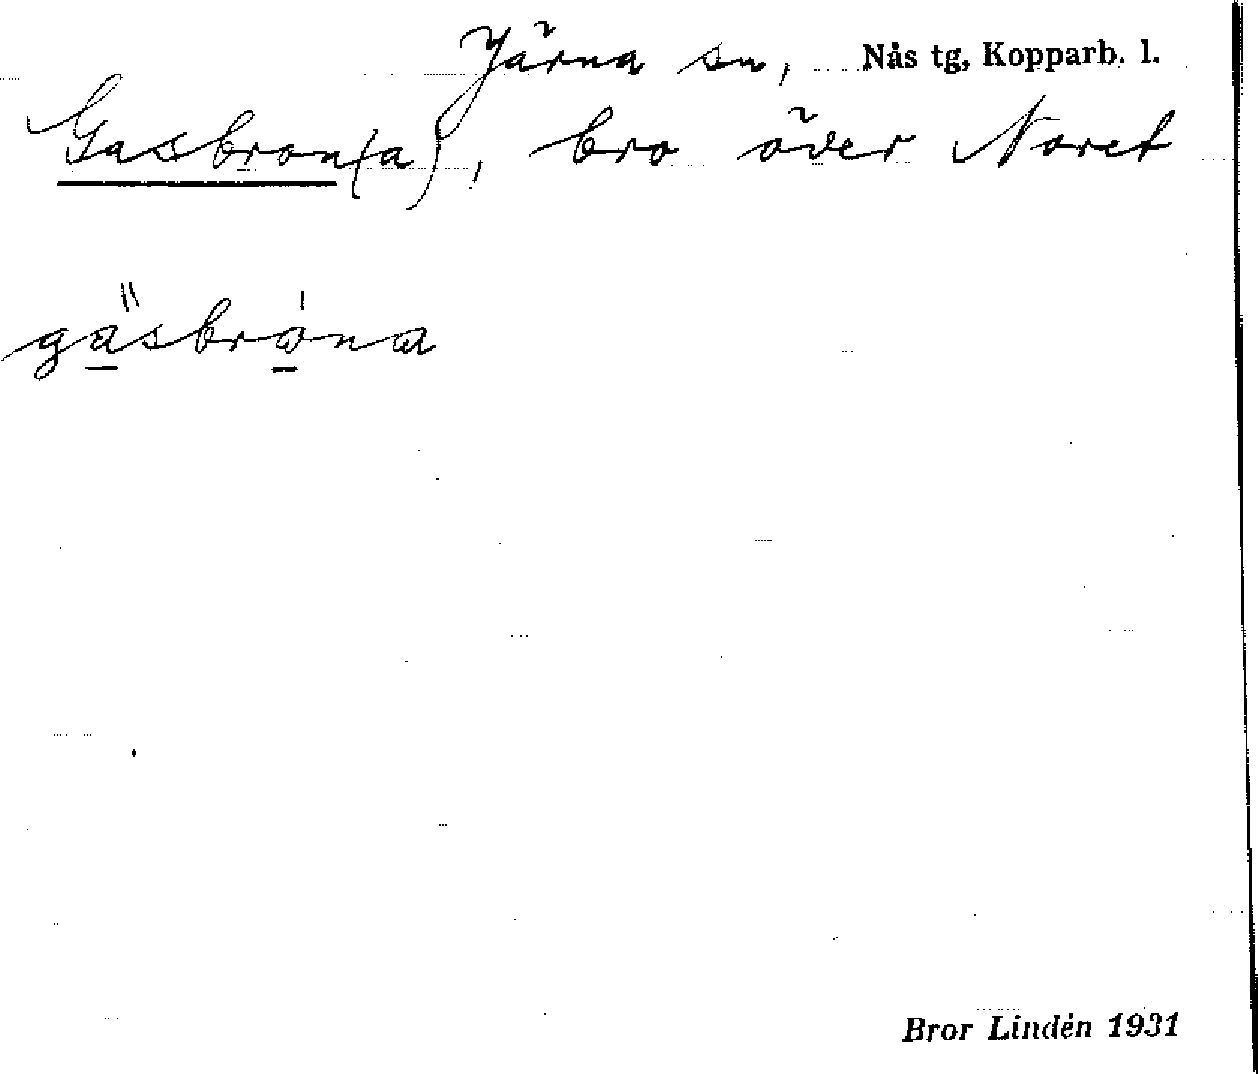 Järna sn, Nås tg, Kopparb. l.
Gasbron(a), bro över Noret
gasbrona
Bror Lindén 1931